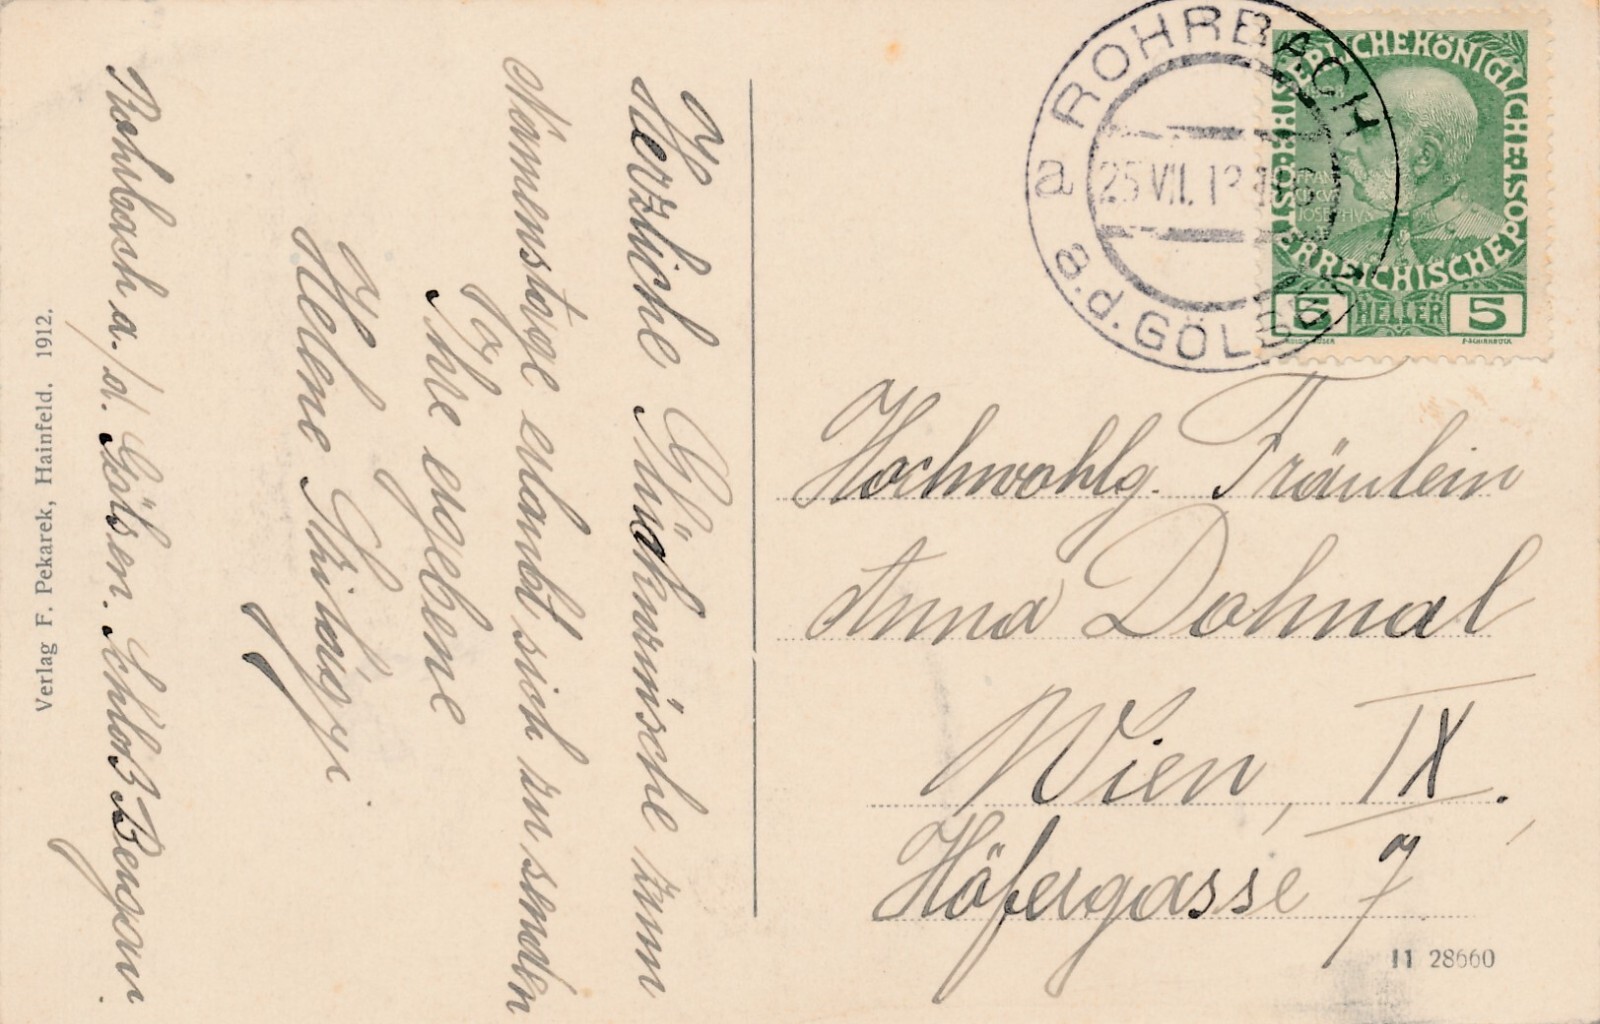 Herzliche Glückwünsche zum
Namenstage erlaubt sich zu senden
Ihre ergebene
Helene
Rohrbach a./d. Gölsen. Schloß Bergau.
Verlag F. Pekarek, Hainfeld. 1912.
ROHRBACH
a.d. GÖLSEN
a
25 VII. 12
KAISERLICHEKÖNIGLICHE
ÖSTERREICHISCHEPOST
5 HELLER 5
Hochwohlg. Fräulein
Anna Dohnal
Wien, IX.
Höfergasse 7
11 28660